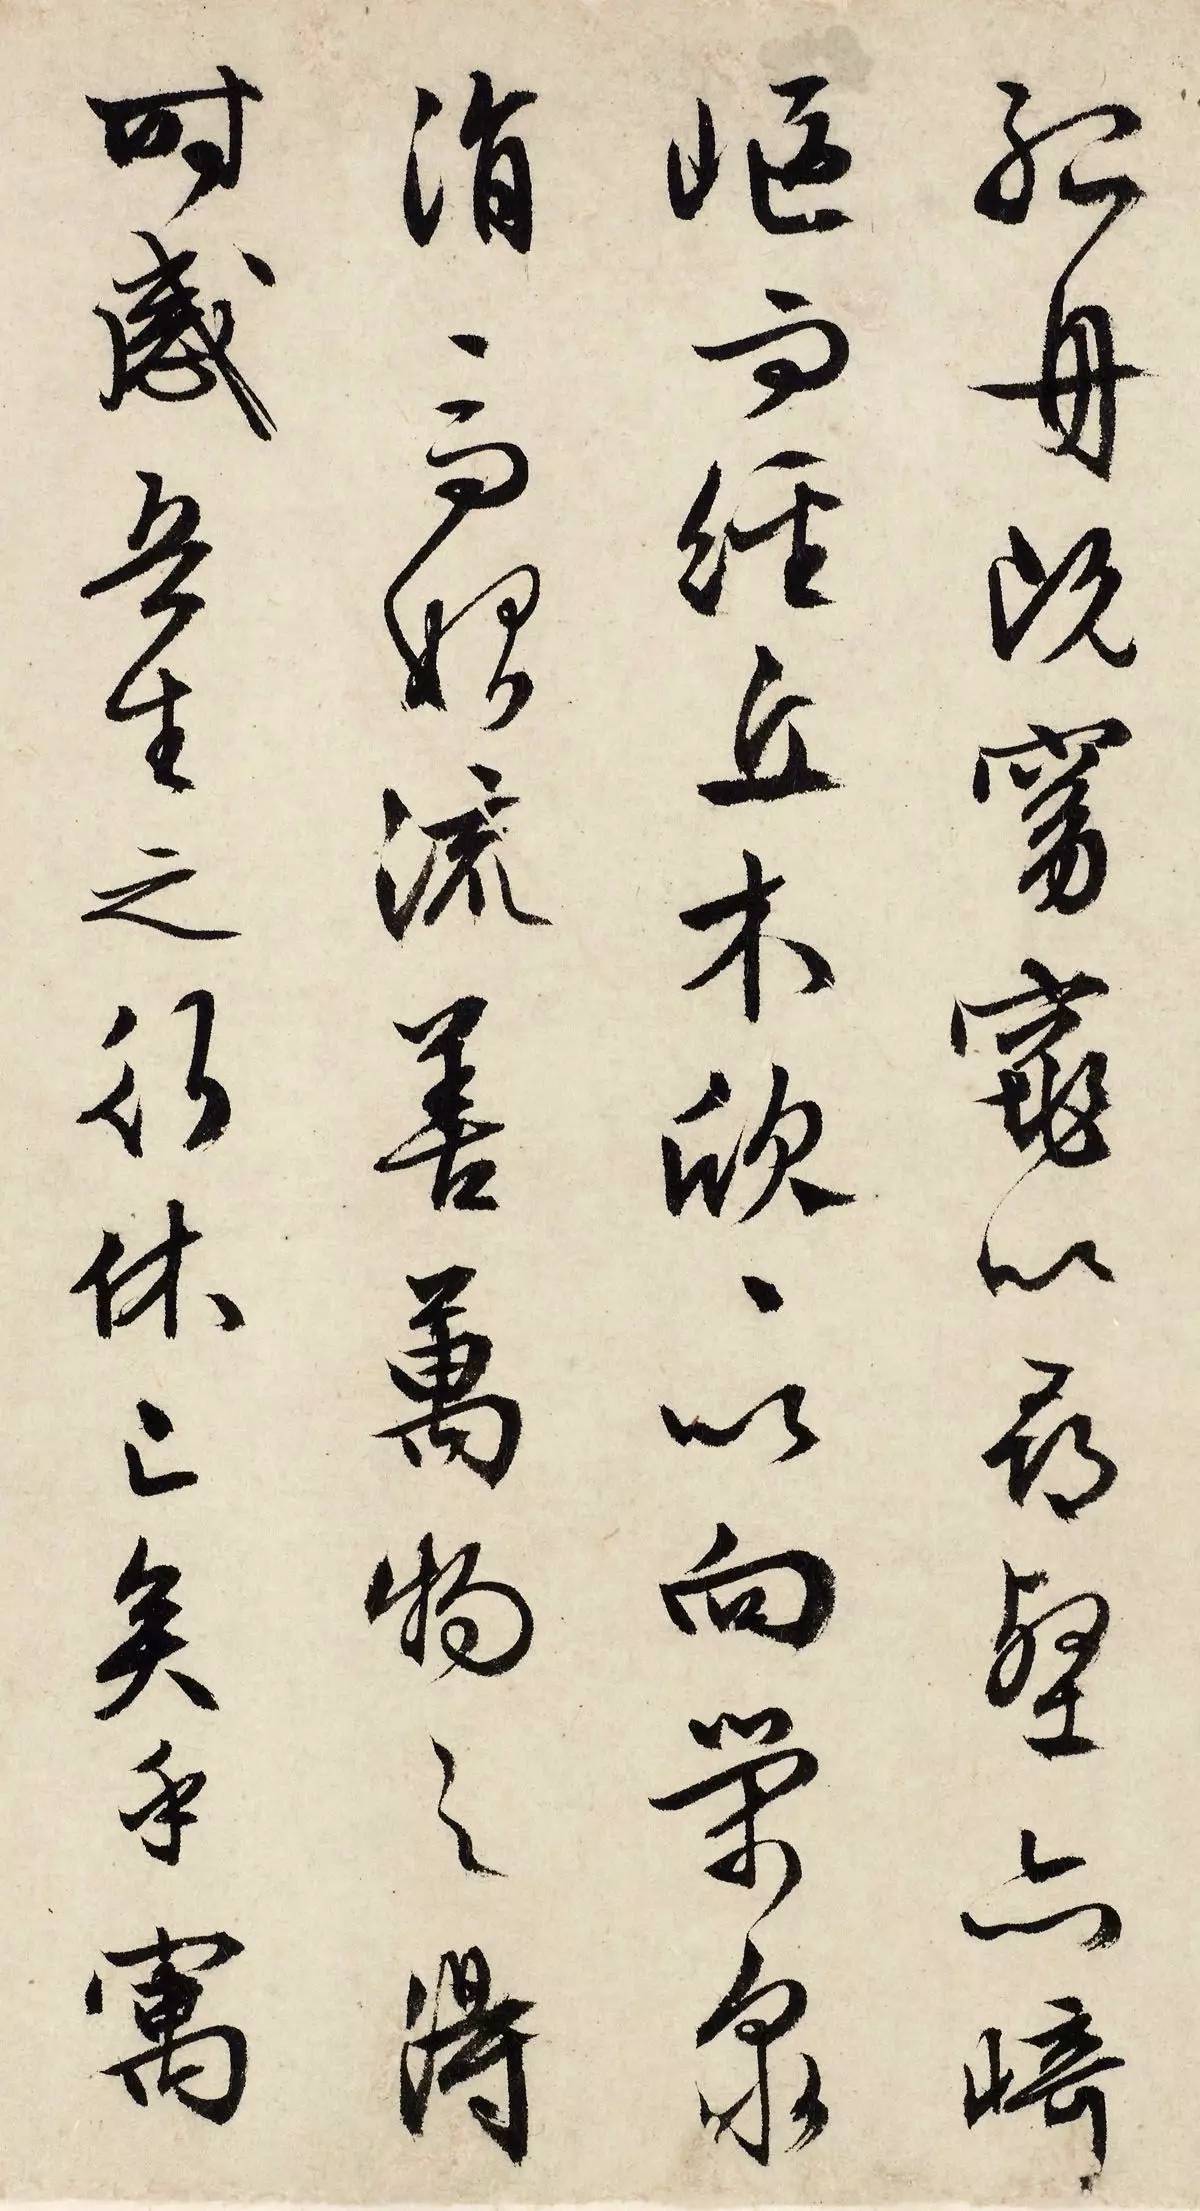 孤舟既窈窕以尋壑亦崎
嶇而經丘木欣々以向榮泉
涓々而始流善萬物之得
時感吾生之行休已矣乎寓